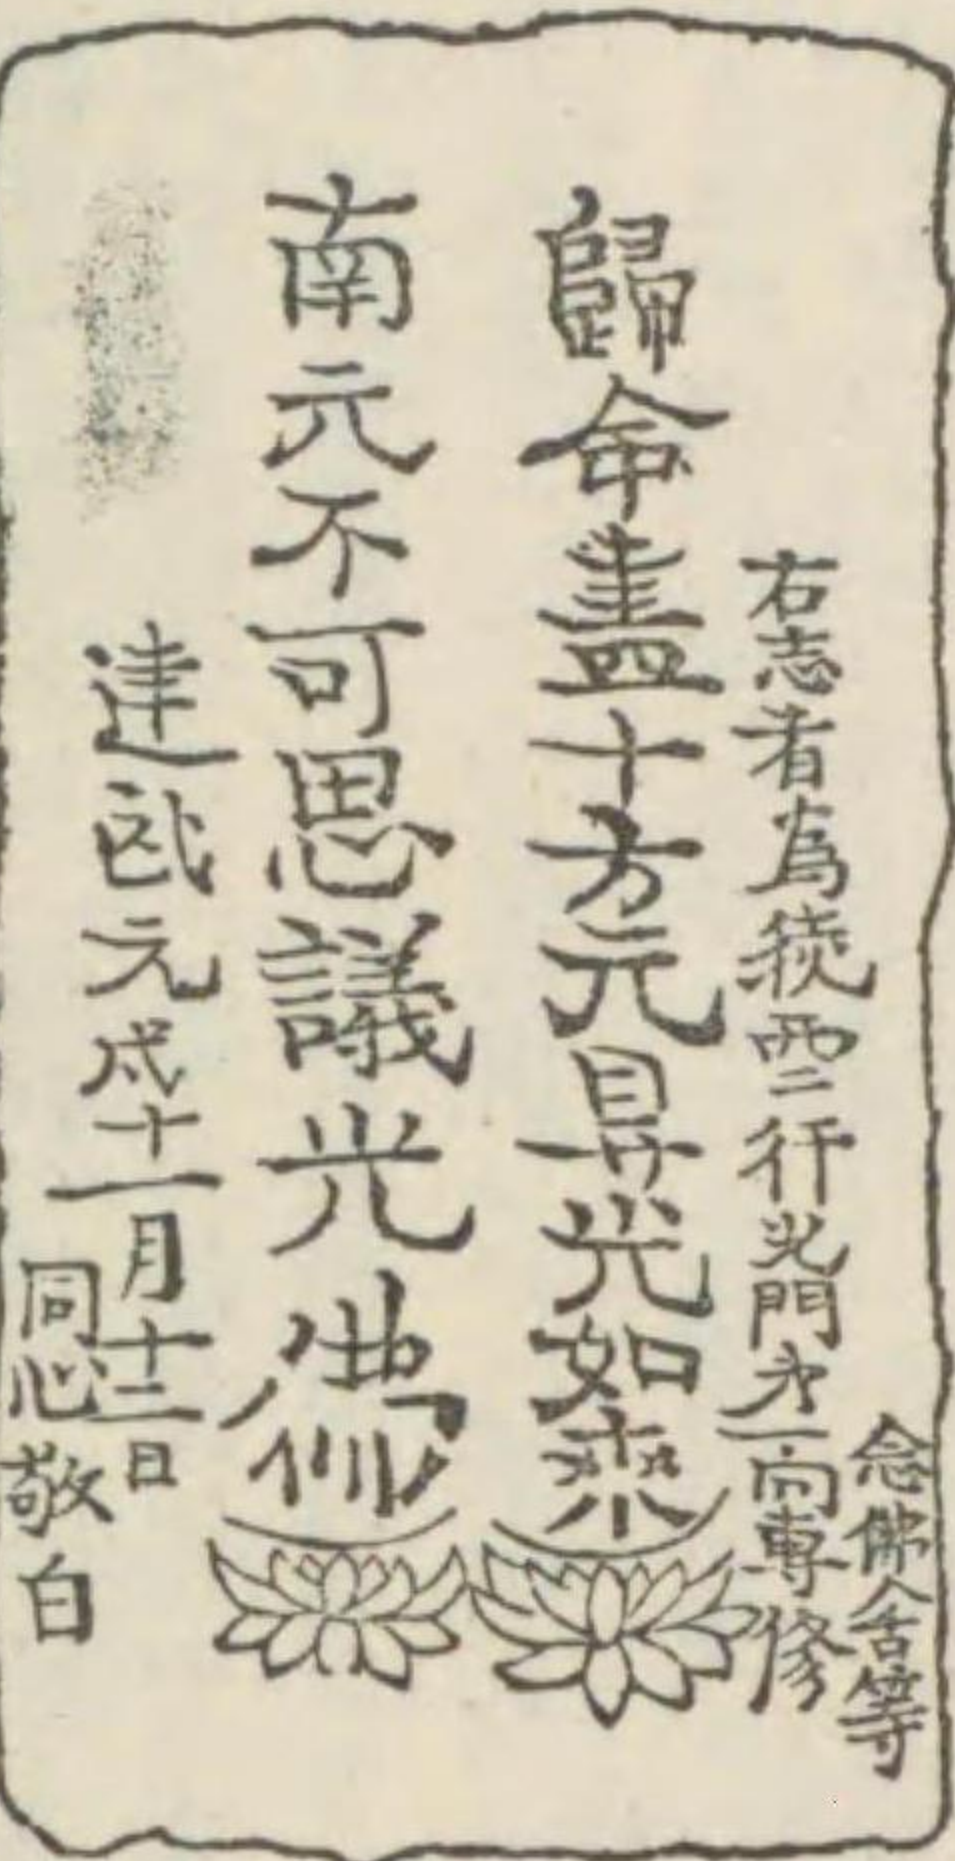 右志者為行光門弟一向專修
念佛人等
歸命盡十方元㝵光如來
南元不可思議光佛
建武元戌十一月十二日
同心敬白